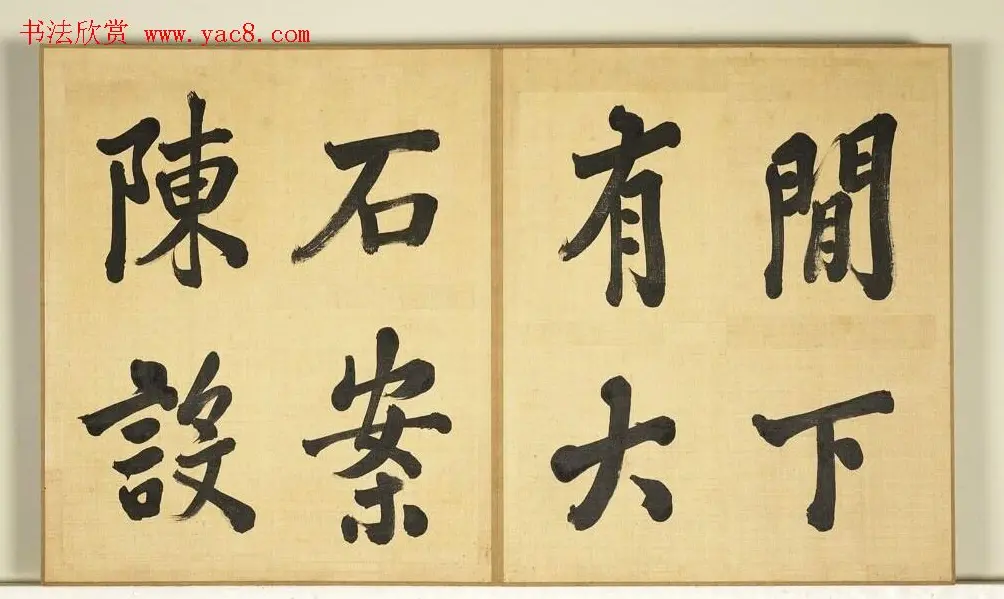 书法欣赏 www.yac8.com
間下
有大
石案
陳設